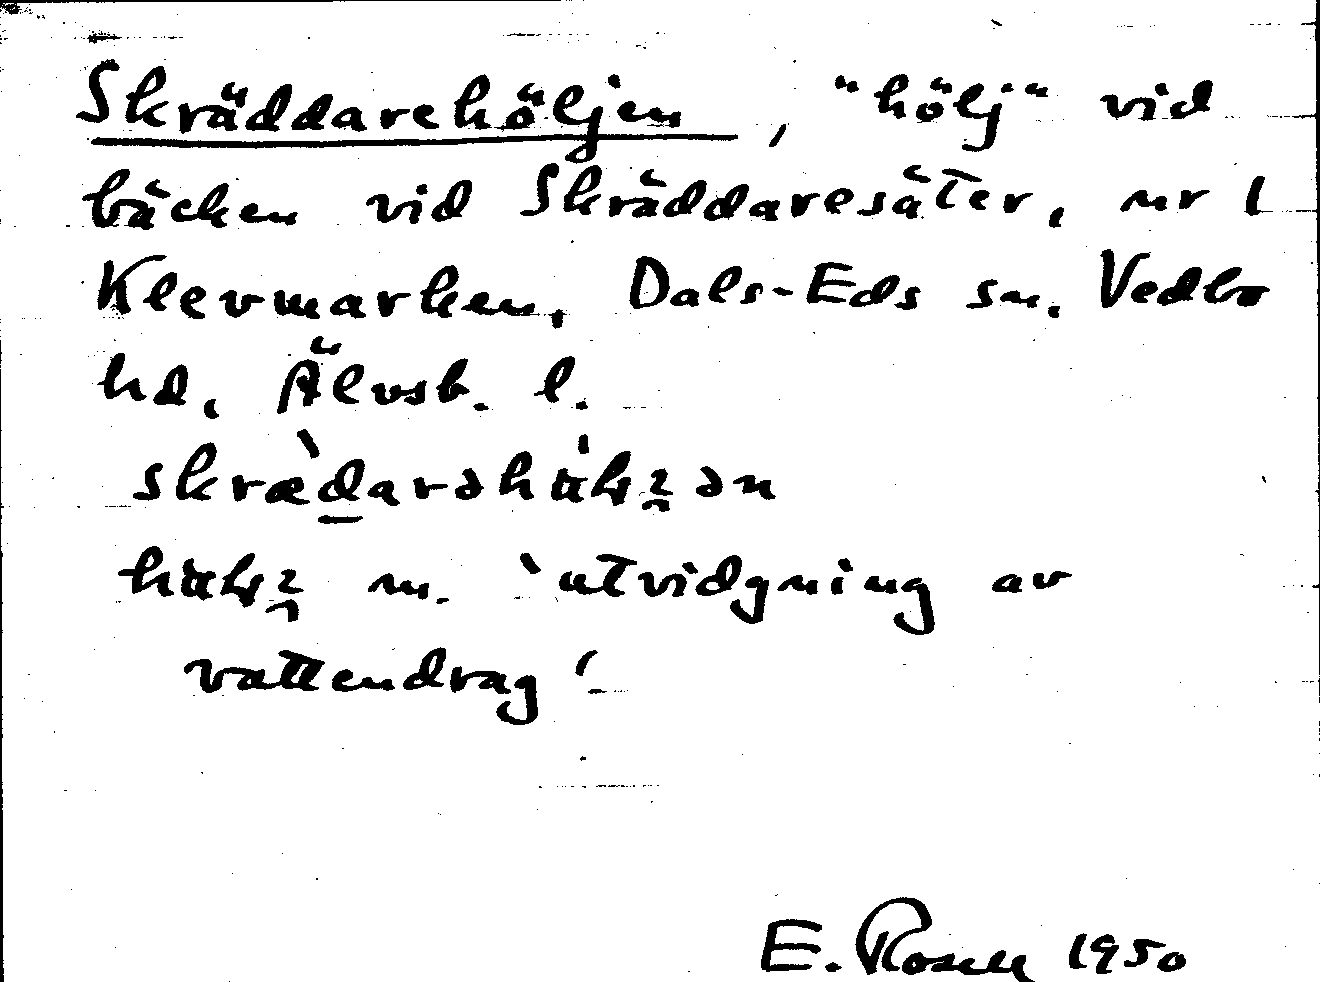 Skräddarehöljen, "hölj" vid
bäcken vid Skräddaresäter, nr 1
Klevmarken, Dals-Eds sn. Vedbo
hd, Älvsb. l.
m. `utvidgning av
vattendrag ́
E. Rosell 1950